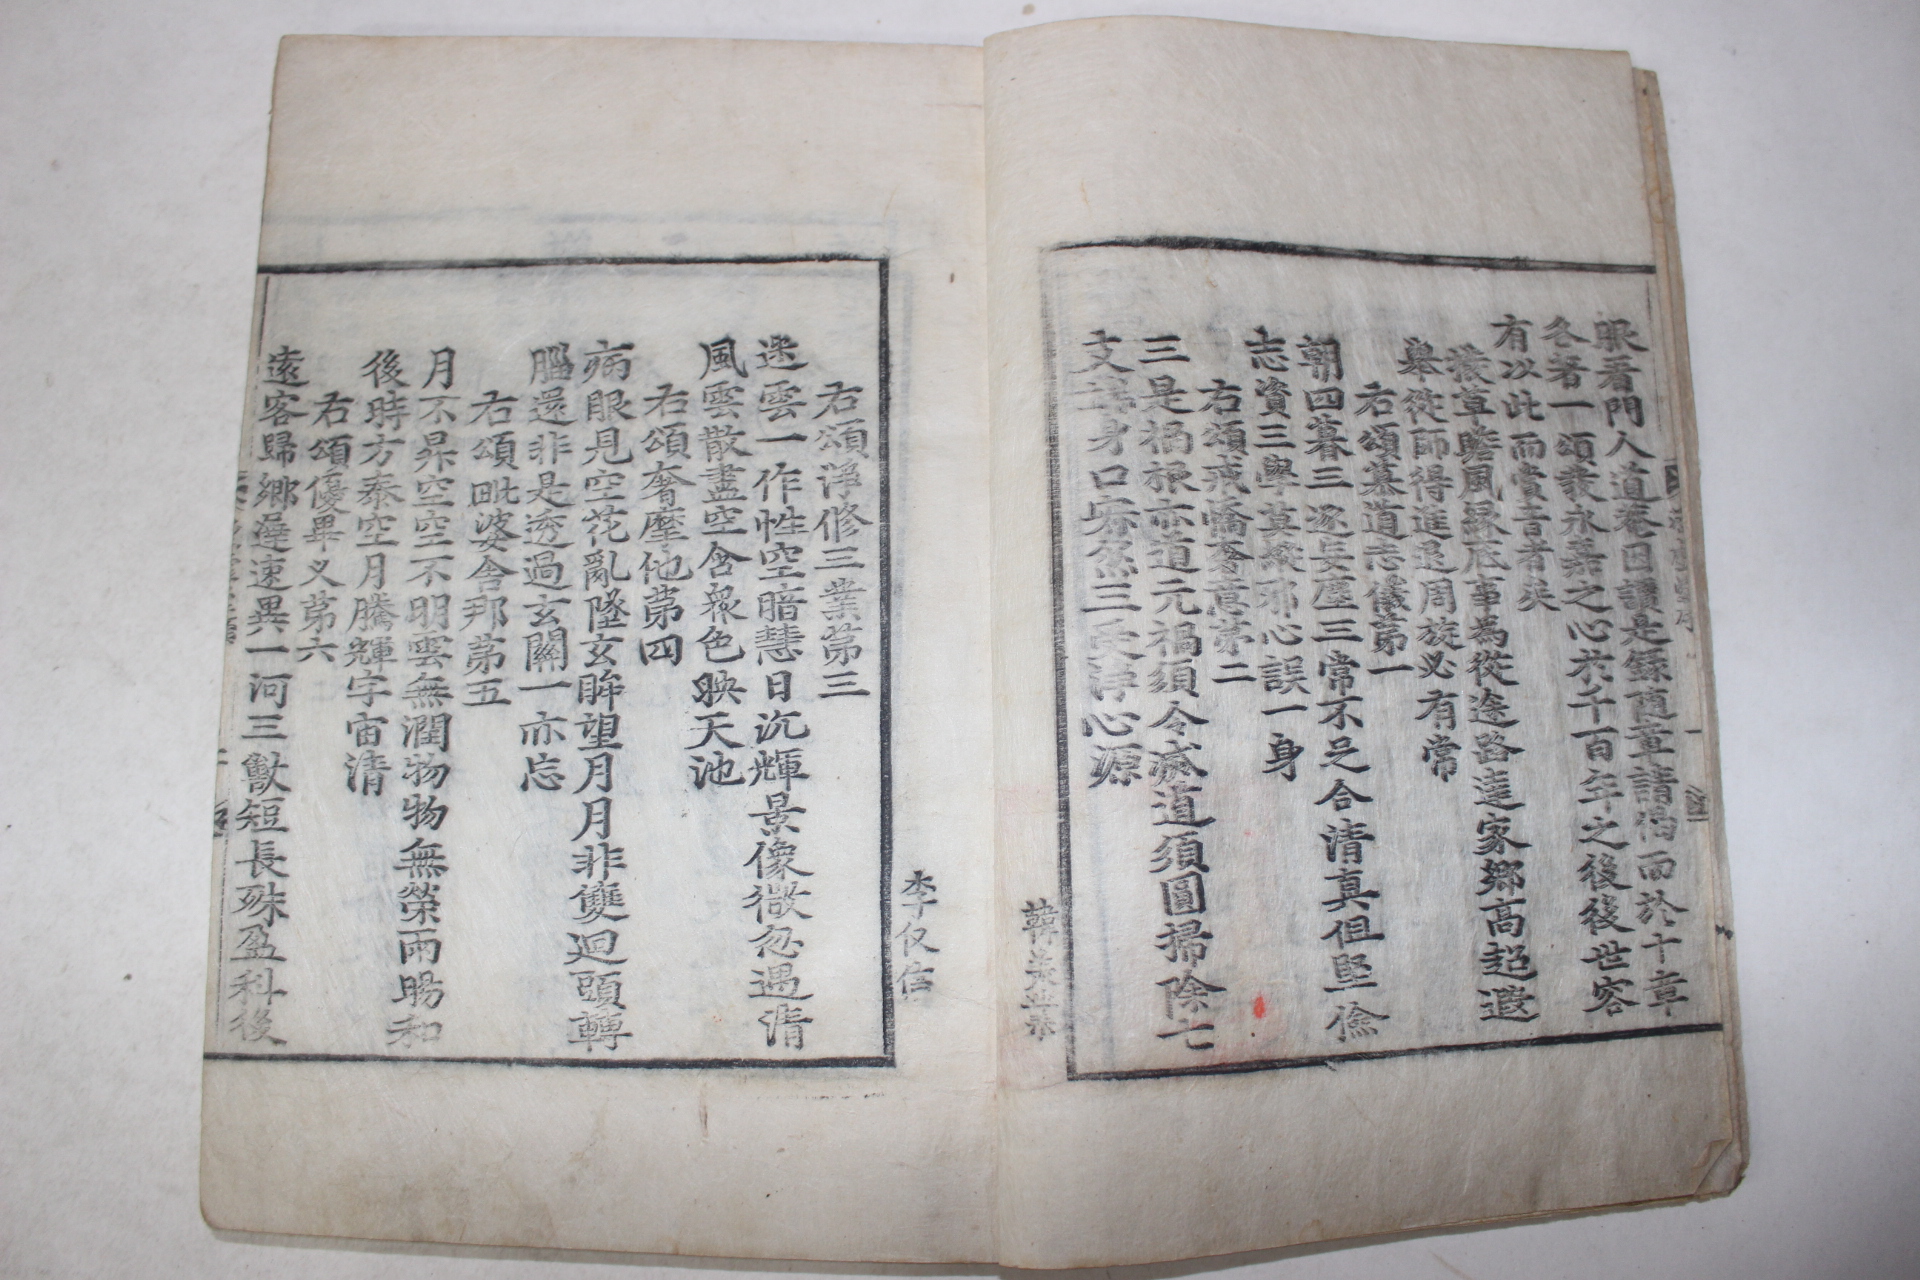 眼著門人道庵因讀是錄随章請偈而於十章
各著一頌裁永嘉之心於千百年之後後世容
有以此而賞音者矣
撥草瞻風緣底事爲從途路達家鄉高超遐
擧從師得進退周旋必有常
右頌慕道志儀第一
朝四暮三逐妄塵三常不足合清真但堅儉
志資三學莫縱邪心誤一身
右頌戒憍奢意第二
三是禍根亦道元禍須令滅道須圓掃除七
支身口三受淨心源
右頌淨修三業第三
迷雲一作性空暗慧日沉輝景像微忽遇清
風雲散盡空含衆色映天池
右頌奢摩他第四
病眼見空花亂墜玄眸望月月非雙迴頭轉
腦還非是透過玄關一亦忘
右頌毗婆舍那第五
月不昇空空不明雲無潤物物無榮雨暘和
後時方泰空月騰輝宇宙清
右頌優畢义第六
遠客歸鄉遲速異一河三獸短長殊盈科後